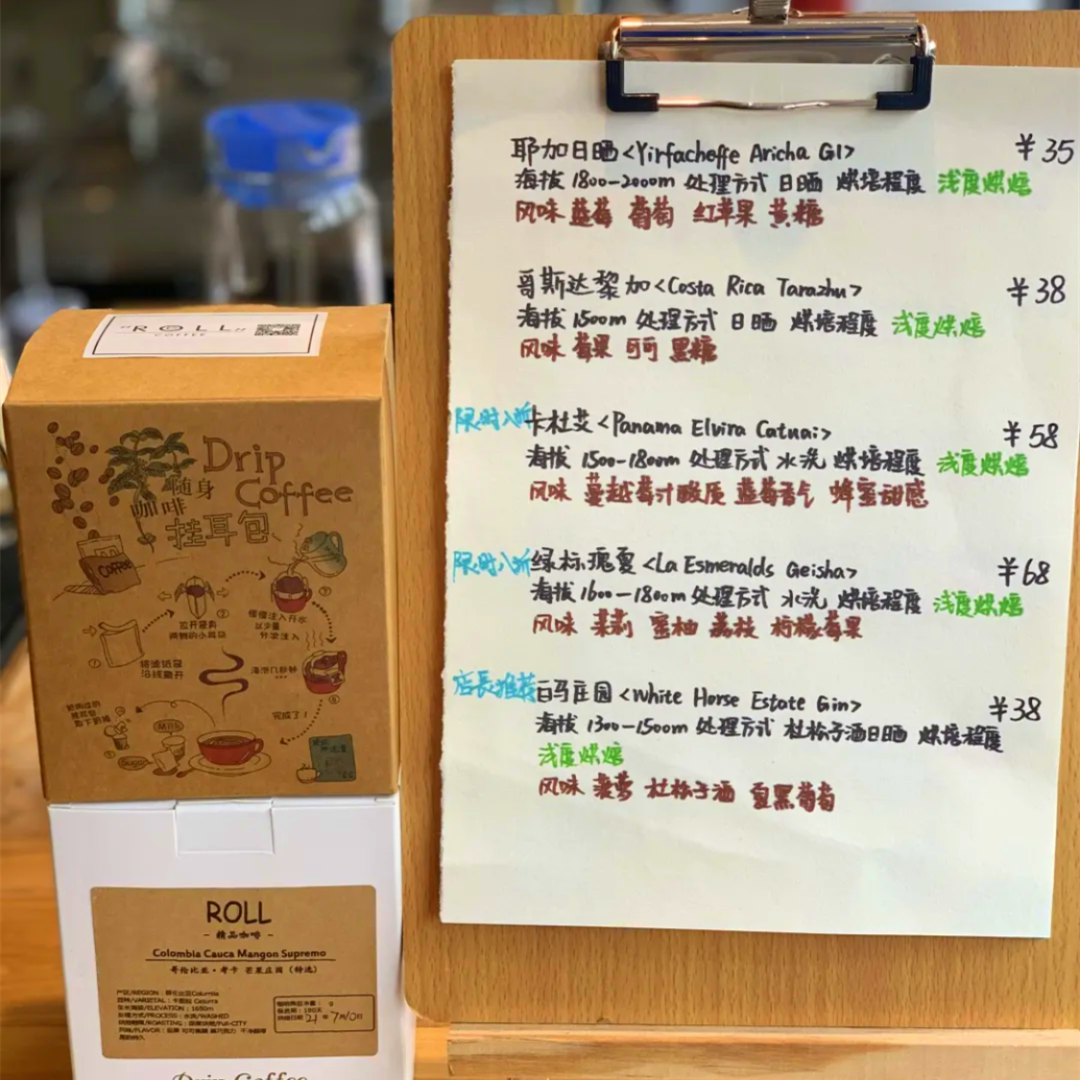 耶加日晒<Yirfacheffe Aricha G1> ￥35
海拔 1800-2000m 处理方式 日晒 烘培程度 浅度烘焙
风味 蓝莓 葡萄 红苹果 黄糖
哥斯达黎加<Costa Rica Tarazhu> ￥38
海拔 1500m 处理方式 日晒 烘培程度 浅度烘焙
风味 莓果 可可 黑糖
限时八折 卡杜艾<Panama Elvira Catuai> ￥58
海拔 1500-1800m 处理方式 水洗 烘培程度 浅度烘焙
风味 蔓越莓汁酸质 蓝莓香气 蜂蜜甜感
限时八折 绿标瑰夏<La Esmeralds Geisha> ￥68
海拔 1600-1800m 处理方式 水洗 烘培程度 浅度烘焙
风味 茉莉 蜜柚 荔枝 柠檬莓果
店長推荐 白马庄园<White Horse Estate Gin> ￥38
海拔 1300-1500m 处理方式 杜松子酒日晒 烘培程度
浅度烘焙
风味 菠萝 杜松子酒 夏黑葡萄
ROLL
COFFEE
Drip
Coffee
随身
咖啡
挂耳包
COFFEE
拉开滤袋
两侧的小耳朵
缓缓注入开水
以少量
分次注入
将滤纸袋
沿线撕开
完成了！
Milk
Sugar
ROLL
- 精品咖啡 -
Colombia Cauca Mangon Supremo
哥伦比亚·考卡 芒果庄园（特选）
产区/REGION：哥伦比亚Columbia
豆种/VARIETAL：卡杜拉 Caturra
生长海拔/ELEVATION：1650m
处理方式/PROCESS：水洗/WASHED
Drip Coffee